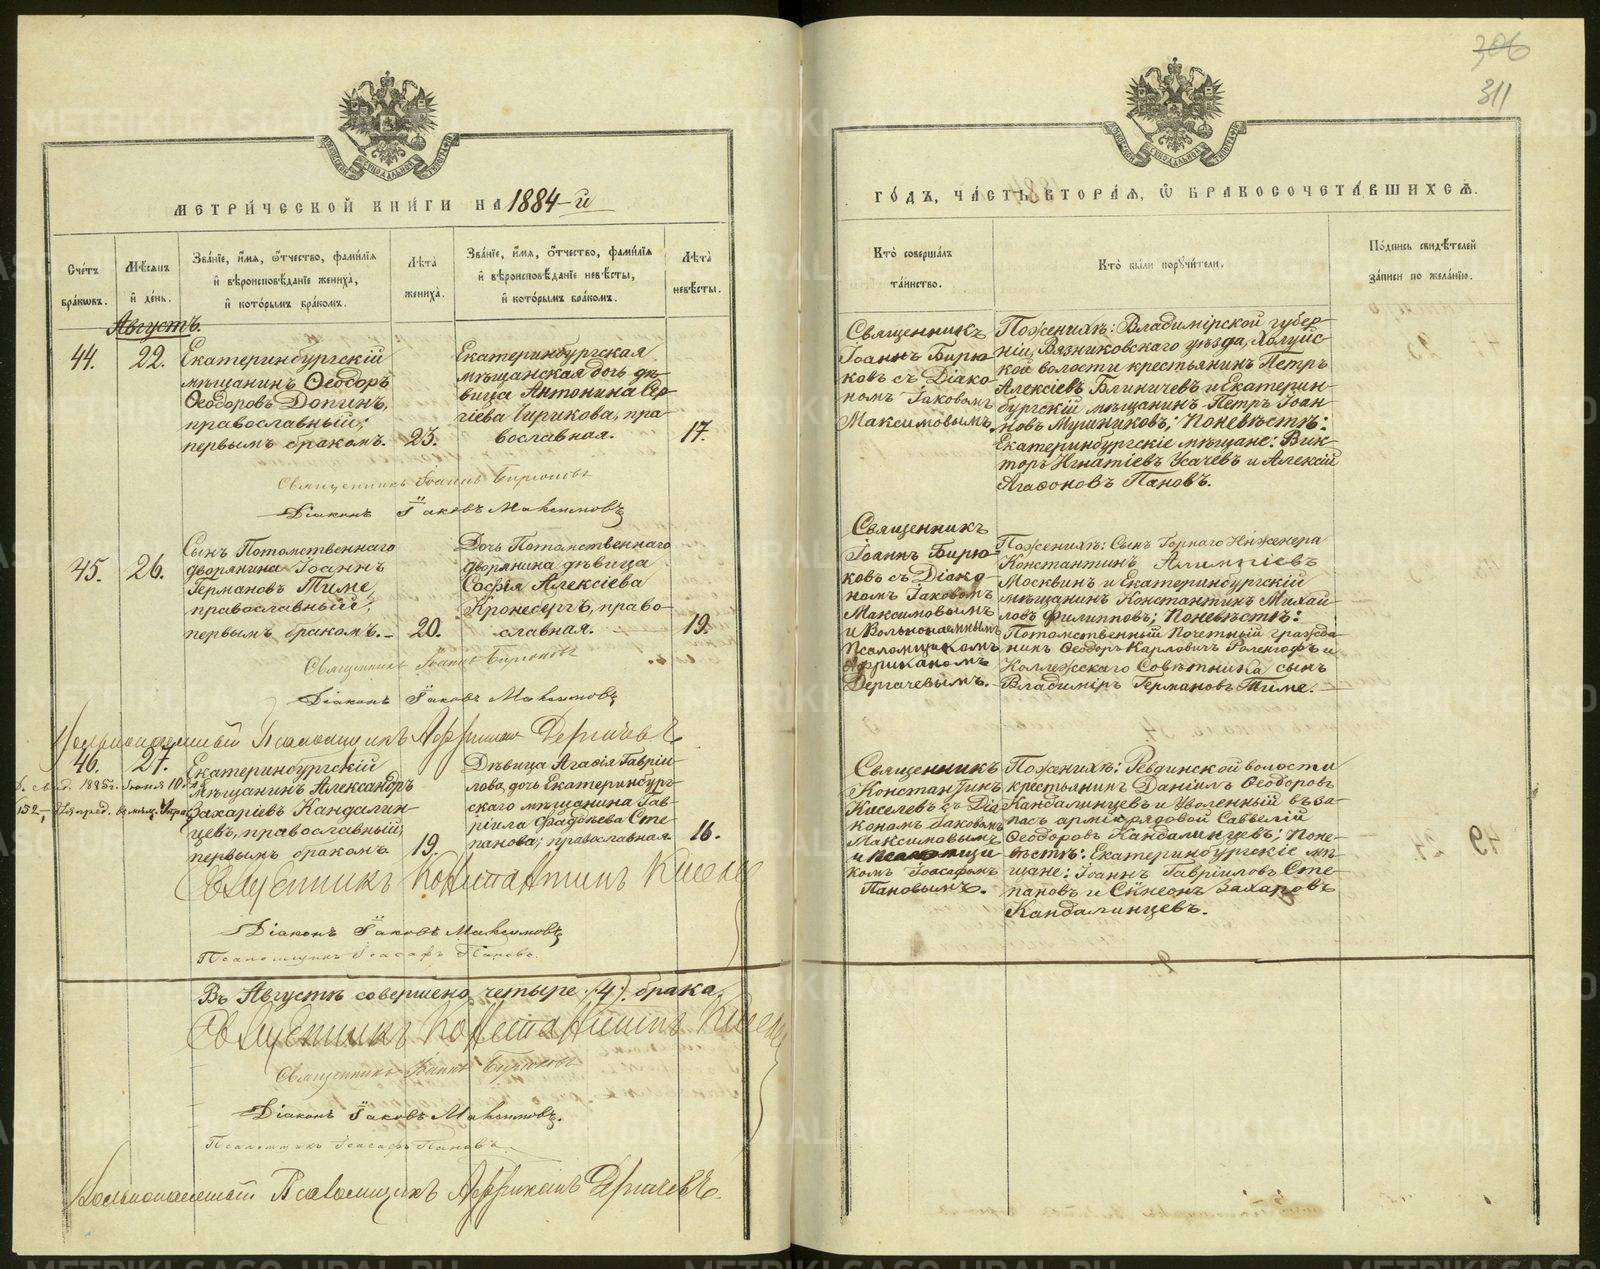 306
311
МЕТРИ́ЧЕСКОЙ КНИ́ГИ НА 1884-й
ГО́ДЪ, ЧА́СТЬ ВТОРА́Я, Ѿ БРАКОСОЧЕТА́ВШИХСЯ.
Сче́тъ бра́ковъ.
Мѣ́сяцъ и҆ де́нь.
Зва́нїе, и҆́мя, ѻ҆́тчество, фамѝлїя
и҆ вѣроисповѣ́данїе жениха̀,
и҆ кото́рымъ бра́комъ.
Лѣ́та
жениха̀.
Зва́нїе, и҆́мя, ѻ҆́тчество, фамѝлїя
и҆ вѣроисповѣ́данїе невѣ́сты,
и҆ кото́рымъ бра́комъ.
Лѣ́та
невѣ́сты.
Кто̀ соверша́лъ
та́инство.
Кто̀ бы́ли порꙋчи́тели.
По́дпись свидѣ́телей
за́писи по жела́нїю.
Августъ.
44.
22.
Екатеринбургскій
мѣщанинъ Ѳеодоръ
Ѳеодоровъ Допинъ,
православный;
первымъ бракомъ.
23.
Екатеринбургская
мѣщанская дочь дѣ-
вица Антонина Сер-
гіева Чирикова, пра-
вославная.
17.
Священникъ
Іоаннъ Бирю-
ковъ съ Діако-
номъ Іаковомъ
Максимовымъ.
Поженихѣ: Владимірской губер-
ніи, Вязниковскаго уѣзда, Холуйс-
кой волости крестьянинъ Петръ
Алексіевъ Блиничевъ и Екатерин-
бургскій мѣщанинъ Петръ Іоан-
новъ Мушниковъ; Поневѣстѣ:
Екатеринбургскіе мѣщане: Вик-
торъ Игнатіевъ Усачевъ и Алексій
Агаѳоновъ Пановъ.
Священникъ Іоаннъ Бирюковъ
Діаконъ Іаковъ Максимовъ
45.
26.
Сынъ Потомственнаго
дворянина Іоаннъ
Германовъ Тиме,
православный;
первымъ бракомъ.
20.
Дочь Потомственнаго
дворянина дѣвица
Софія Алексіева
Кронебергъ, право-
славная.
19.
Священникъ
Іоаннъ Бирю-
ковъ съ Діако-
номъ Іаковомъ
Максимовымъ
и Вольнонаемнымъ
Псаломщикомъ
Африканомъ
Дергачевымъ.
Поженихѣ: Сынъ Горнаго Инженера
Константинъ Алимпіевъ
Москвинъ и Екатеринбургскій
мѣщанинъ Константинъ Михай-
ловъ Филипповъ; Поневѣстѣ:
Потомственный Почетный гражда-
нинъ Ѳеодоръ Карловичъ Роленгофъ и
Коллежскаго Совѣтника сынъ
Владиміръ Германовъ Тиме.
Священникъ Іоаннъ Бирюковъ
Діаконъ Іаковъ Максимовъ
Вольнонаемный Псаломщикъ Африканъ Дергачевъ
46.
27.
Екатеринбургскій
мѣщанинъ Александръ
Захаріевъ Кандалин-
цевъ, православный;
первымъ бракомъ
19.
Дѣвица Агаѳія Гавріи-
лова, дочь Екатеринбург-
скаго мѣщанина Гав-
ріила Фадѣева Сте-
панова; православная
16.
Священникъ
Константинъ
Киселевъ съ Діа
кономъ Іаковомъ
Максимовымъ
и Псаломщи-
комъ Іоасафомъ
Пановымъ.
Поженихѣ: Ревдинской волости
крестьянинъ Даніилъ Ѳеодоровъ
Кандалинцевъ и Уволенный въ за-
пасъ арміи рядовой Савелій
Ѳеодоровъ Кандалинцевъ; Поне-
вѣстѣ: Екатеринбургскіе мѣ-
щане: Іоаннъ Гавріиловъ Сте-
пановъ и Сѵмеонъ Захаровъ
Кандалинцевъ.
Священникъ Константинъ Киселевъ
Діаконъ Іаковъ Максимовъ
Псаломщикъ Іоасафъ Пановъ.
Въ Августѣ совершено четыре (4) брака.
Священникъ Константинъ Киселевъ
Священникъ Іоаннъ Бирюковъ
Діаконъ Іаковъ Максимовъ.
Псаломщикъ Іоасафъ Пановъ.
Вольнонаемный Псаломщикъ Африканъ Дергачевъ.
METRIKI.GASO-URAL.RU